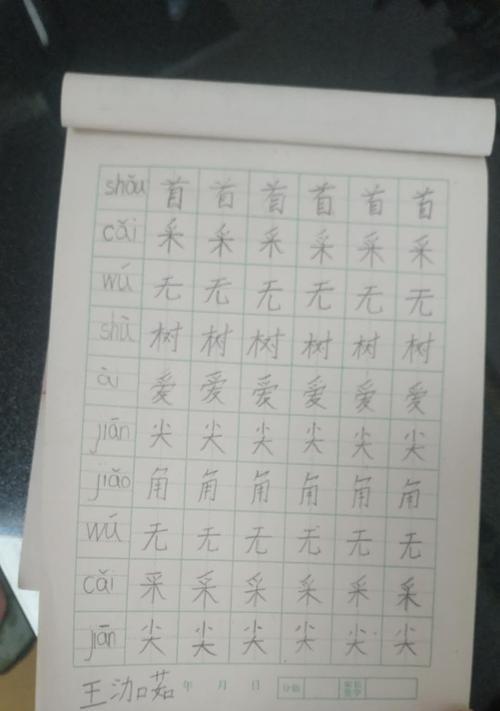 shǒu 首 首 首 首 首 首
cǎi 采 采 采 采 采 采
wú 无 无 无 无 无 无
shù 树 树 树 树 树 树
ài 爱 爱 爱 爱 爱 爱
jiān 尖 尖 尖 尖 尖 尖
jiǎo 角 角 角 角 角 角
wú 无 无 无 无 无 无
cǎi 采 采 采 采 采 采
jiān 尖 尖 尖 尖 尖 尖
王泇茹 年 月 日